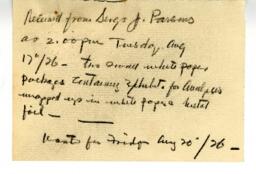 Received from Sergt J. Parsons
at 2.00 pm Tuesday Aug
17th/26 - two small white paper
packages containing exhibits for analysis
wrapped up in white paper & metal
foil -
Wants for Friday Aug 20th/26 -